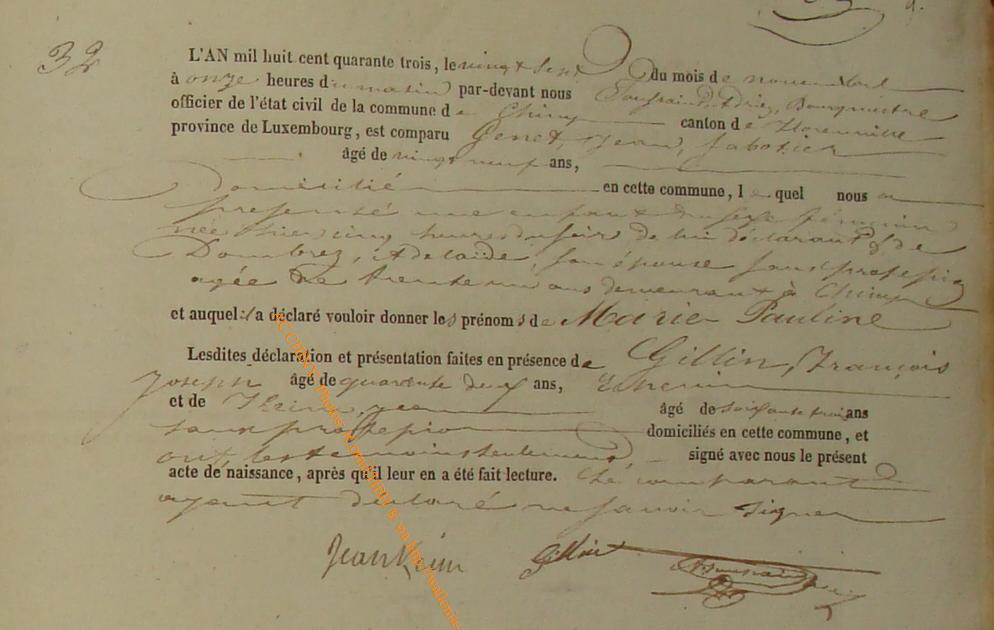 32
L'AN mil huit cent quarante trois, le vingt sept du mois de novembre
à onze heures du matin par-devant nous Bourgmestre
officier de l'état civil de la commune de Chiny canton de Florenville
province de Luxembourg, est comparu Genet, Jean, Sabotier
âgé de vingt neuf ans,
Domicilié en cette commune, lequel nous a
présenté une enfant du sexe féminin
née hier cinq heures du soir, de lui déclarant & de
Dombrez, Adelaïde, son épouse sans profession
agée de trente un ans demeurant à Chiny
et auquel il a déclaré vouloir donner les prénoms de Marie Pauline
Lesdites déclaration et présentation faites en présence de Gillin, François
Joseph âgé de quarante deux ans,
et de Jean âgé de soixante trois ans
sans profession domiciliés en cette commune, et
ont, les temoins seulement, signé avec nous le présent
acte de naissance, après qu'il leur en a été fait lecture. Le comparant
ayant déclaré ne savoir signer
Jean Gillin